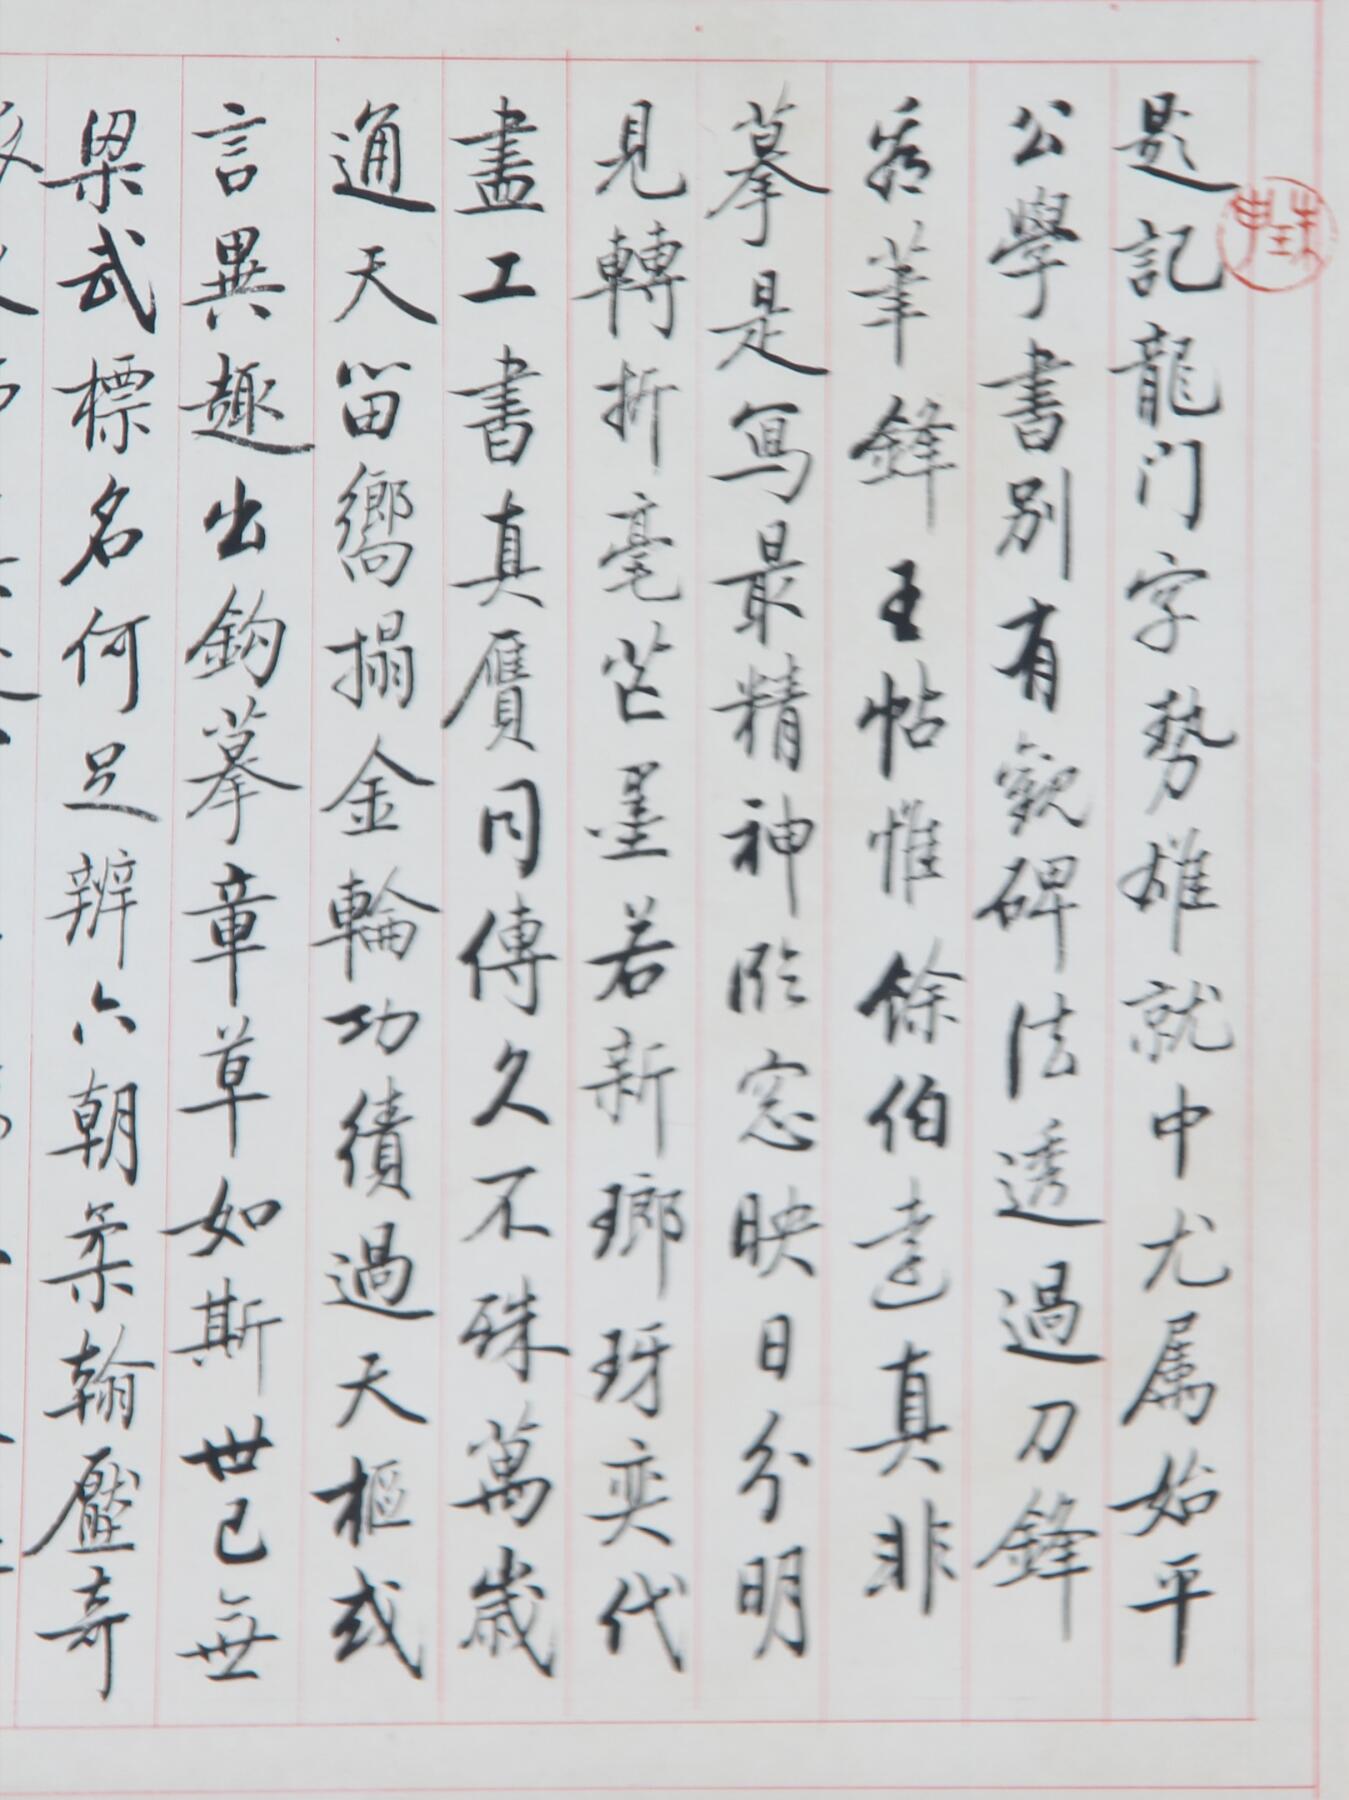 題記龍门字勢雄就中尤属始平
公學書别有觀碑法透過刀鋒
看筆鋒王帖惟餘伯遠真非
摹是寫最精神臨窓映日分明
見轉折毫芒墨若新瑯玡奕代
盡工書真贋同傳久不殊萬歲
通天留嚮搨金輪功績過天樞或
言異趣出鈎摹章草如斯世已無
梁武標名何足辨六朝柔翰壓奇